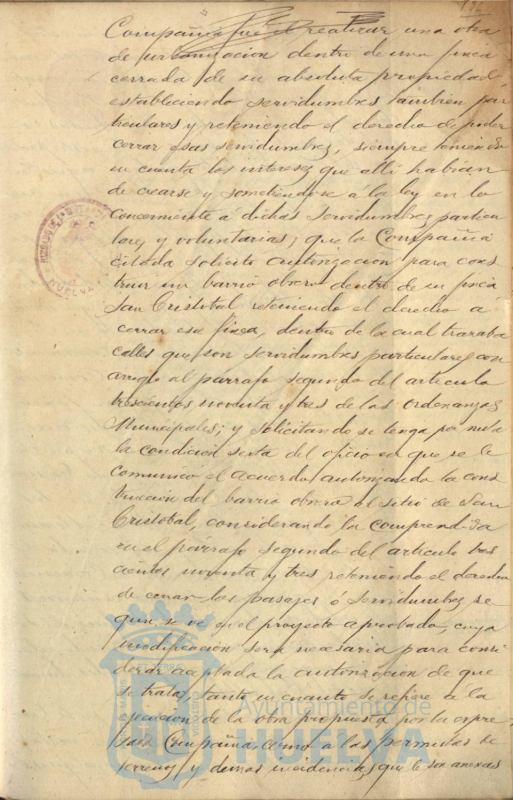 Compañía fué el realizar una obra
de urbanizacion dentro de una finca
cerrada de su absoluta propiedad
estableciendo servidumbres tambien par
ticulares y reteniendo el derecho de poder
cerrar esas servidumbres, siempre teniendo
en cuenta los intereses que alli habian
de crearse y sometiendose a la ley en lo
concerniente a dichas servidumbres particu
lares y voluntarias; que la Compañia
citada solicitó autorizacion para cons
truir un barrio obrero dentro de su finca
San Cristobal reteniendo el derecho á
cerrar esa finca, dentro de la cual trazaba
calles que son servidumbres particulares con
arreglo al párrafo segundo del articulo
trescientos noventa y tres de las Ordenanzas
Municipales; y solicitando se tenga por nula
la condición sexta del oficio en que se le
comunicó el acuerdo autorizando la cons
trucción del barrio obrero al sitio de San
Cristobal, considerando la comprendida
en el párrafo segundo del articulo tres
cientos noventa y tres reteniendo el derecho
de cerrar los pasajes ó servidumbres se
gun se ve en el proyecto aprobado, cuya
modificación será necesaria para consi
derar aceptada la autorizacion de que
se trata, tanto en cuanto se refiere a la
ejecucion de la obra propuesta por la expre
sada Compañia como a las permutas de
terrenos y demas incidencias que le son anexas
HUELVA
Ayuntamiento de
HUELVA